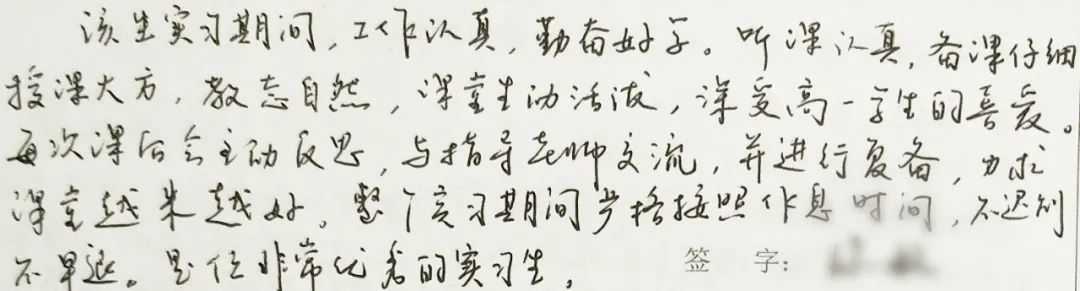 该生实习期间，工作认真，勤奋好学。听课认真，备课仔细
授课大方，教态自然，课堂生动活泼，深受高一学生的喜爱。
每次课后会主动反思，与指导老师交流，并进行复备，力求
课堂越来越好。整个实习期间严格按照作息时间，不迟到
不早退。是位非常优秀的实习生。
签 字：